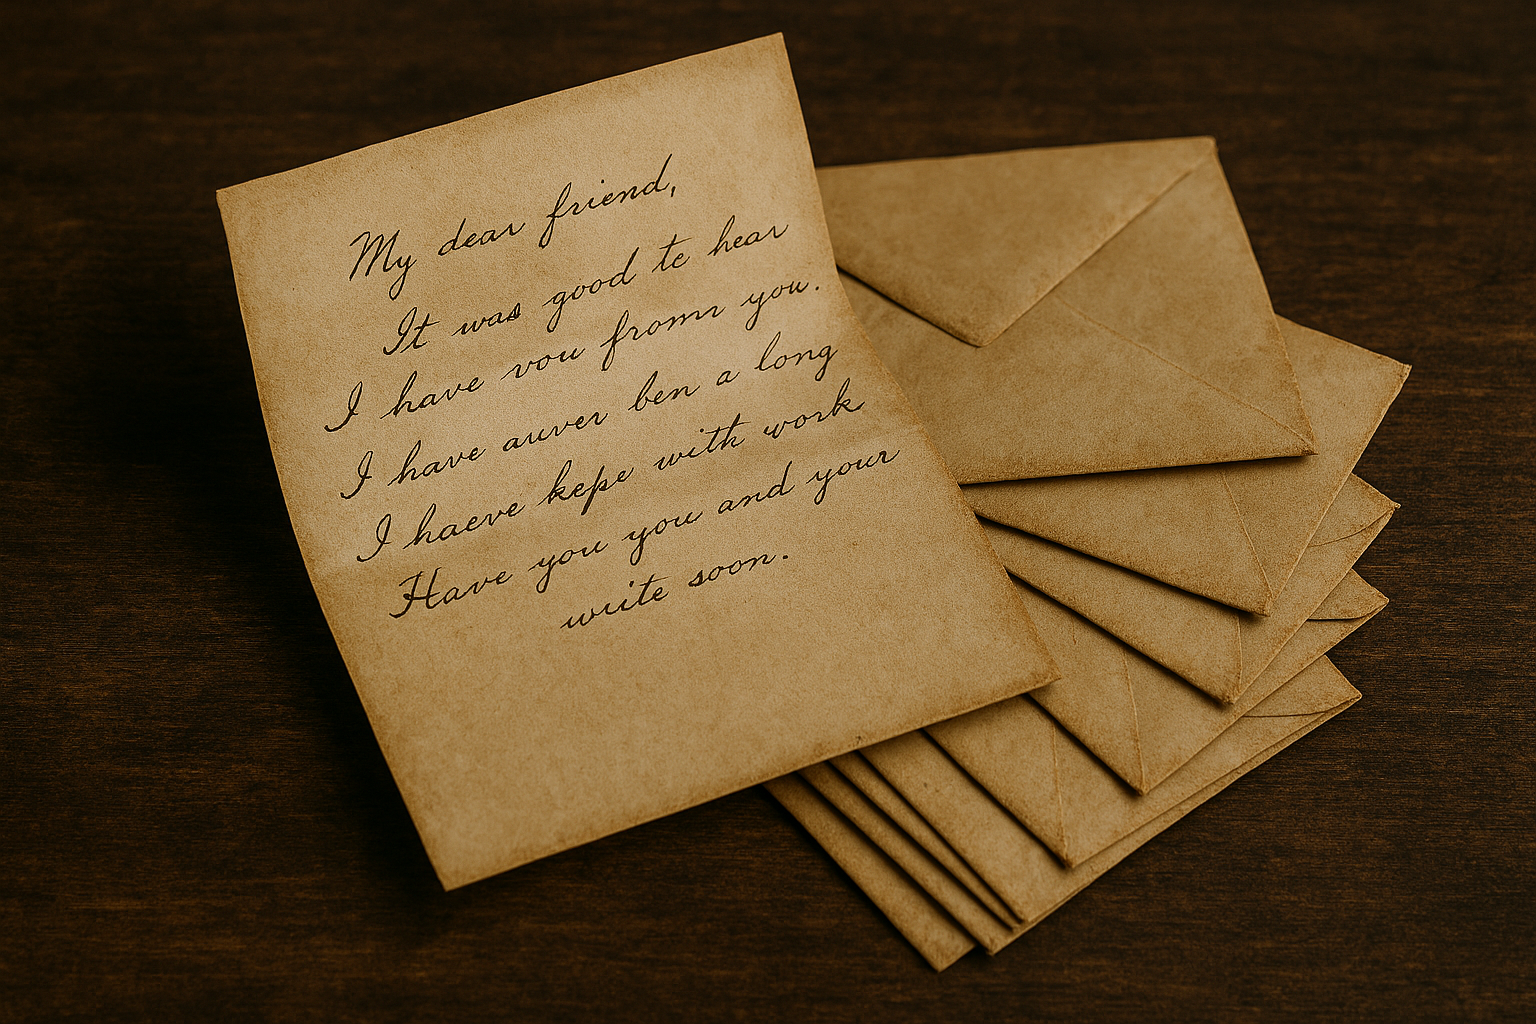 My dear friend,
It was good te hear
I have vou fromr you.
I have auver ben a long
I haeve kepe with work
Have you you and your
write soon.